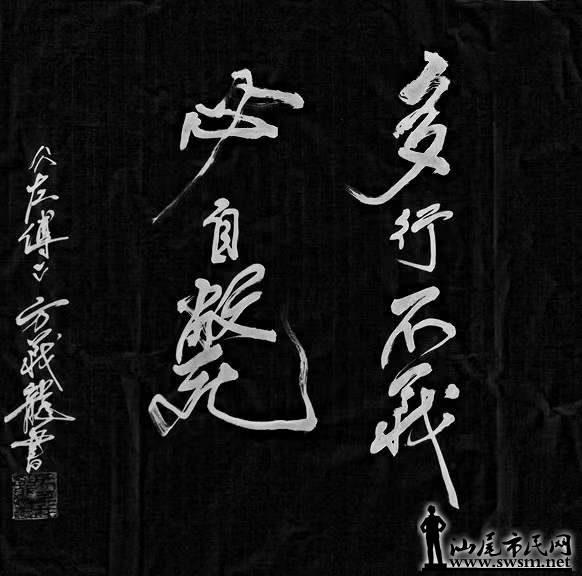 多行不義
必自斃
《左傳》方義龍書
汕尾市民网
www.swsm.net